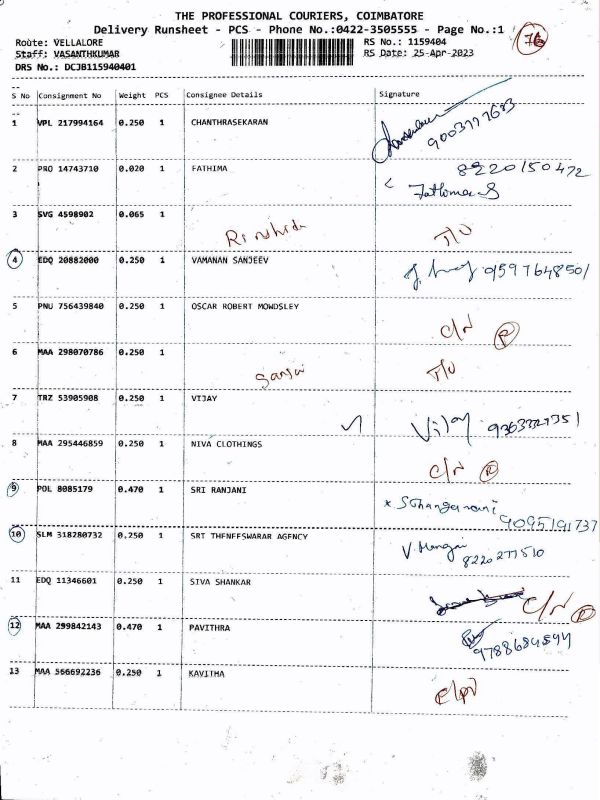 THE PROFESSIONAL COURIERS, COIMBATORE
Delivery Runsheet - PCS - Phone No.:0422-3505555 - Page No.:1
Route: VELLALORE RS No.: 1159404
Staff: VASANTHKUMAR RS Date: 25-Apr-2023
DRS No.: DCJB115940401
S No Consignment No Weight PCS Consignee Details Signature
1 VPL 217994164 0.250 1 CHANTHRASEKARAN
2 PRO 14743710 0.020 1 FATHIMA 8220150472
Fathima S
3 SVG 4598902 0.065 1 T/O
4 EDQ 20882000 0.250 1 VAMANAN SANJEEV 9597648501
5 PNU 756439840 0.250 1 OSCAR ROBERT MOWDSLEY
C/N R
6 MAA 298070786 0.250 1
Sanjai T/O
7 TRZ 53905908 0.250 1 VIJAY
Vijay
8 MAA 295446859 0.250 1 NIVA CLOTHINGS
C/N R
9 POL 8085179 0.470 1 SRI RANJANI
9095191737
10 SLM 318280732 0.250 1 SRT THENEESWARAR AGENCY
8220277510
11 EDQ 11346601 0.250 1 SIVA SHANKAR
C/N R
12 MAA 299842143 0.470 1 PAVITHRA
13 MAA 566692236 0.250 1 KAVITHA